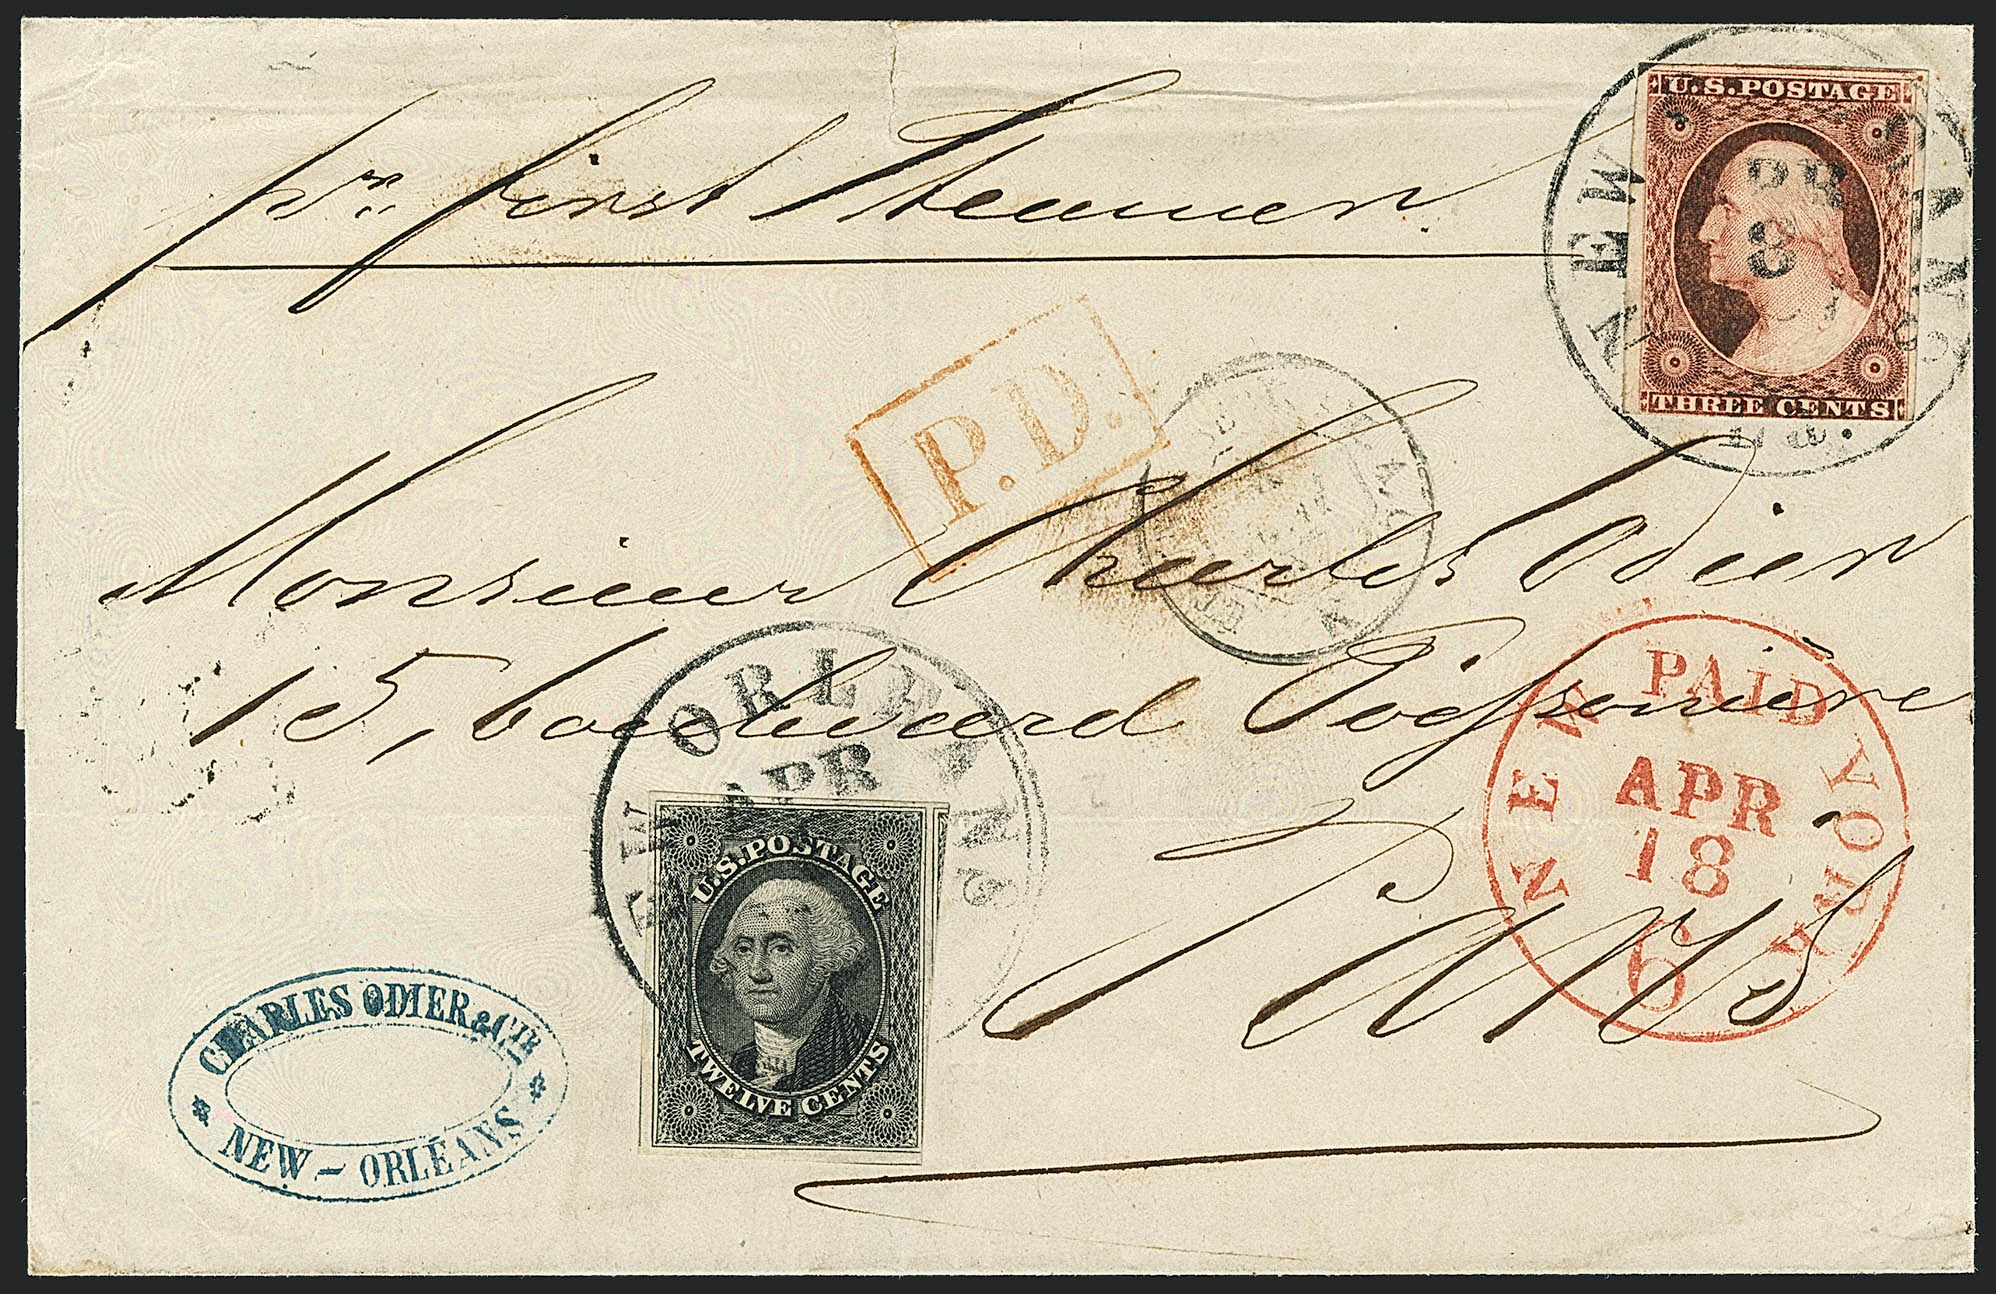 pr. first Steamer.
U.S. POSTAGE
THREE CENTS
NEW
8
P.D.
Monsieur Charles Odier
15, boulevard Poissonière
Paris
NEW PAID YORK
APR
18
6
ORLEANS
APR
U.S. POSTAGE
TWELVE CENTS
CHARLES ODIER & CIE
NEW-ORLÉANS